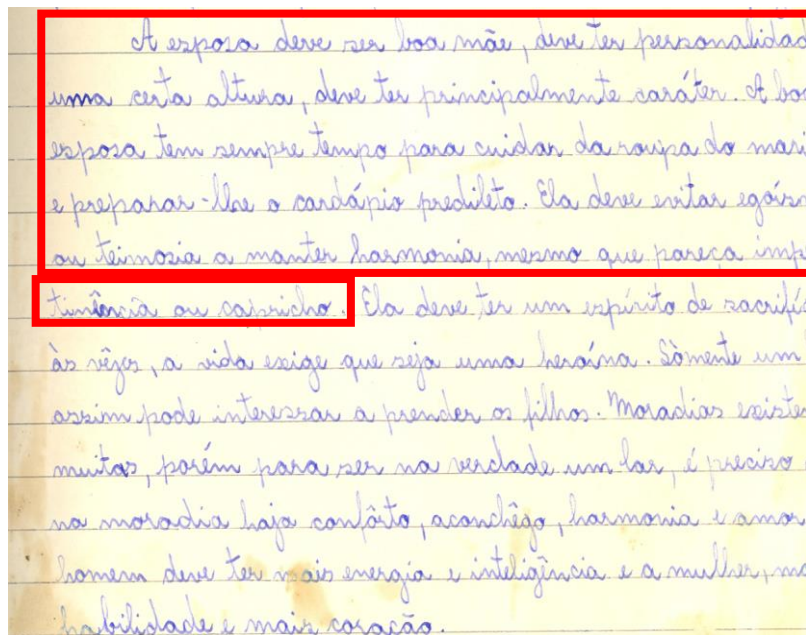 A esposa deve ser boa mãe, deve ter personalidad
uma certa altura, deve ter principalmente caráter. A boa
esposa tem sempre tempo para cuidar da roupa do mari
e preparar-lhe o cardápio predileto. Ela deve evitar egoísm
ou teimosia a manter harmonia, mesmo que pareça impe
tinência ou capricho. Ela deve ter um espírito de sacrifíc
às vêzes, a vida exige que seja uma heroína. Sòmente um
assim pode interessar a prender os filhos. Moradias existe
muitas, porém para ser na verdade um lar, é preciso
na moradia haja confôrto, aconchêgo, harmonia e amor
homem deve ter mais energia e inteligência e a mulher, ma
habilidade e mais coração.